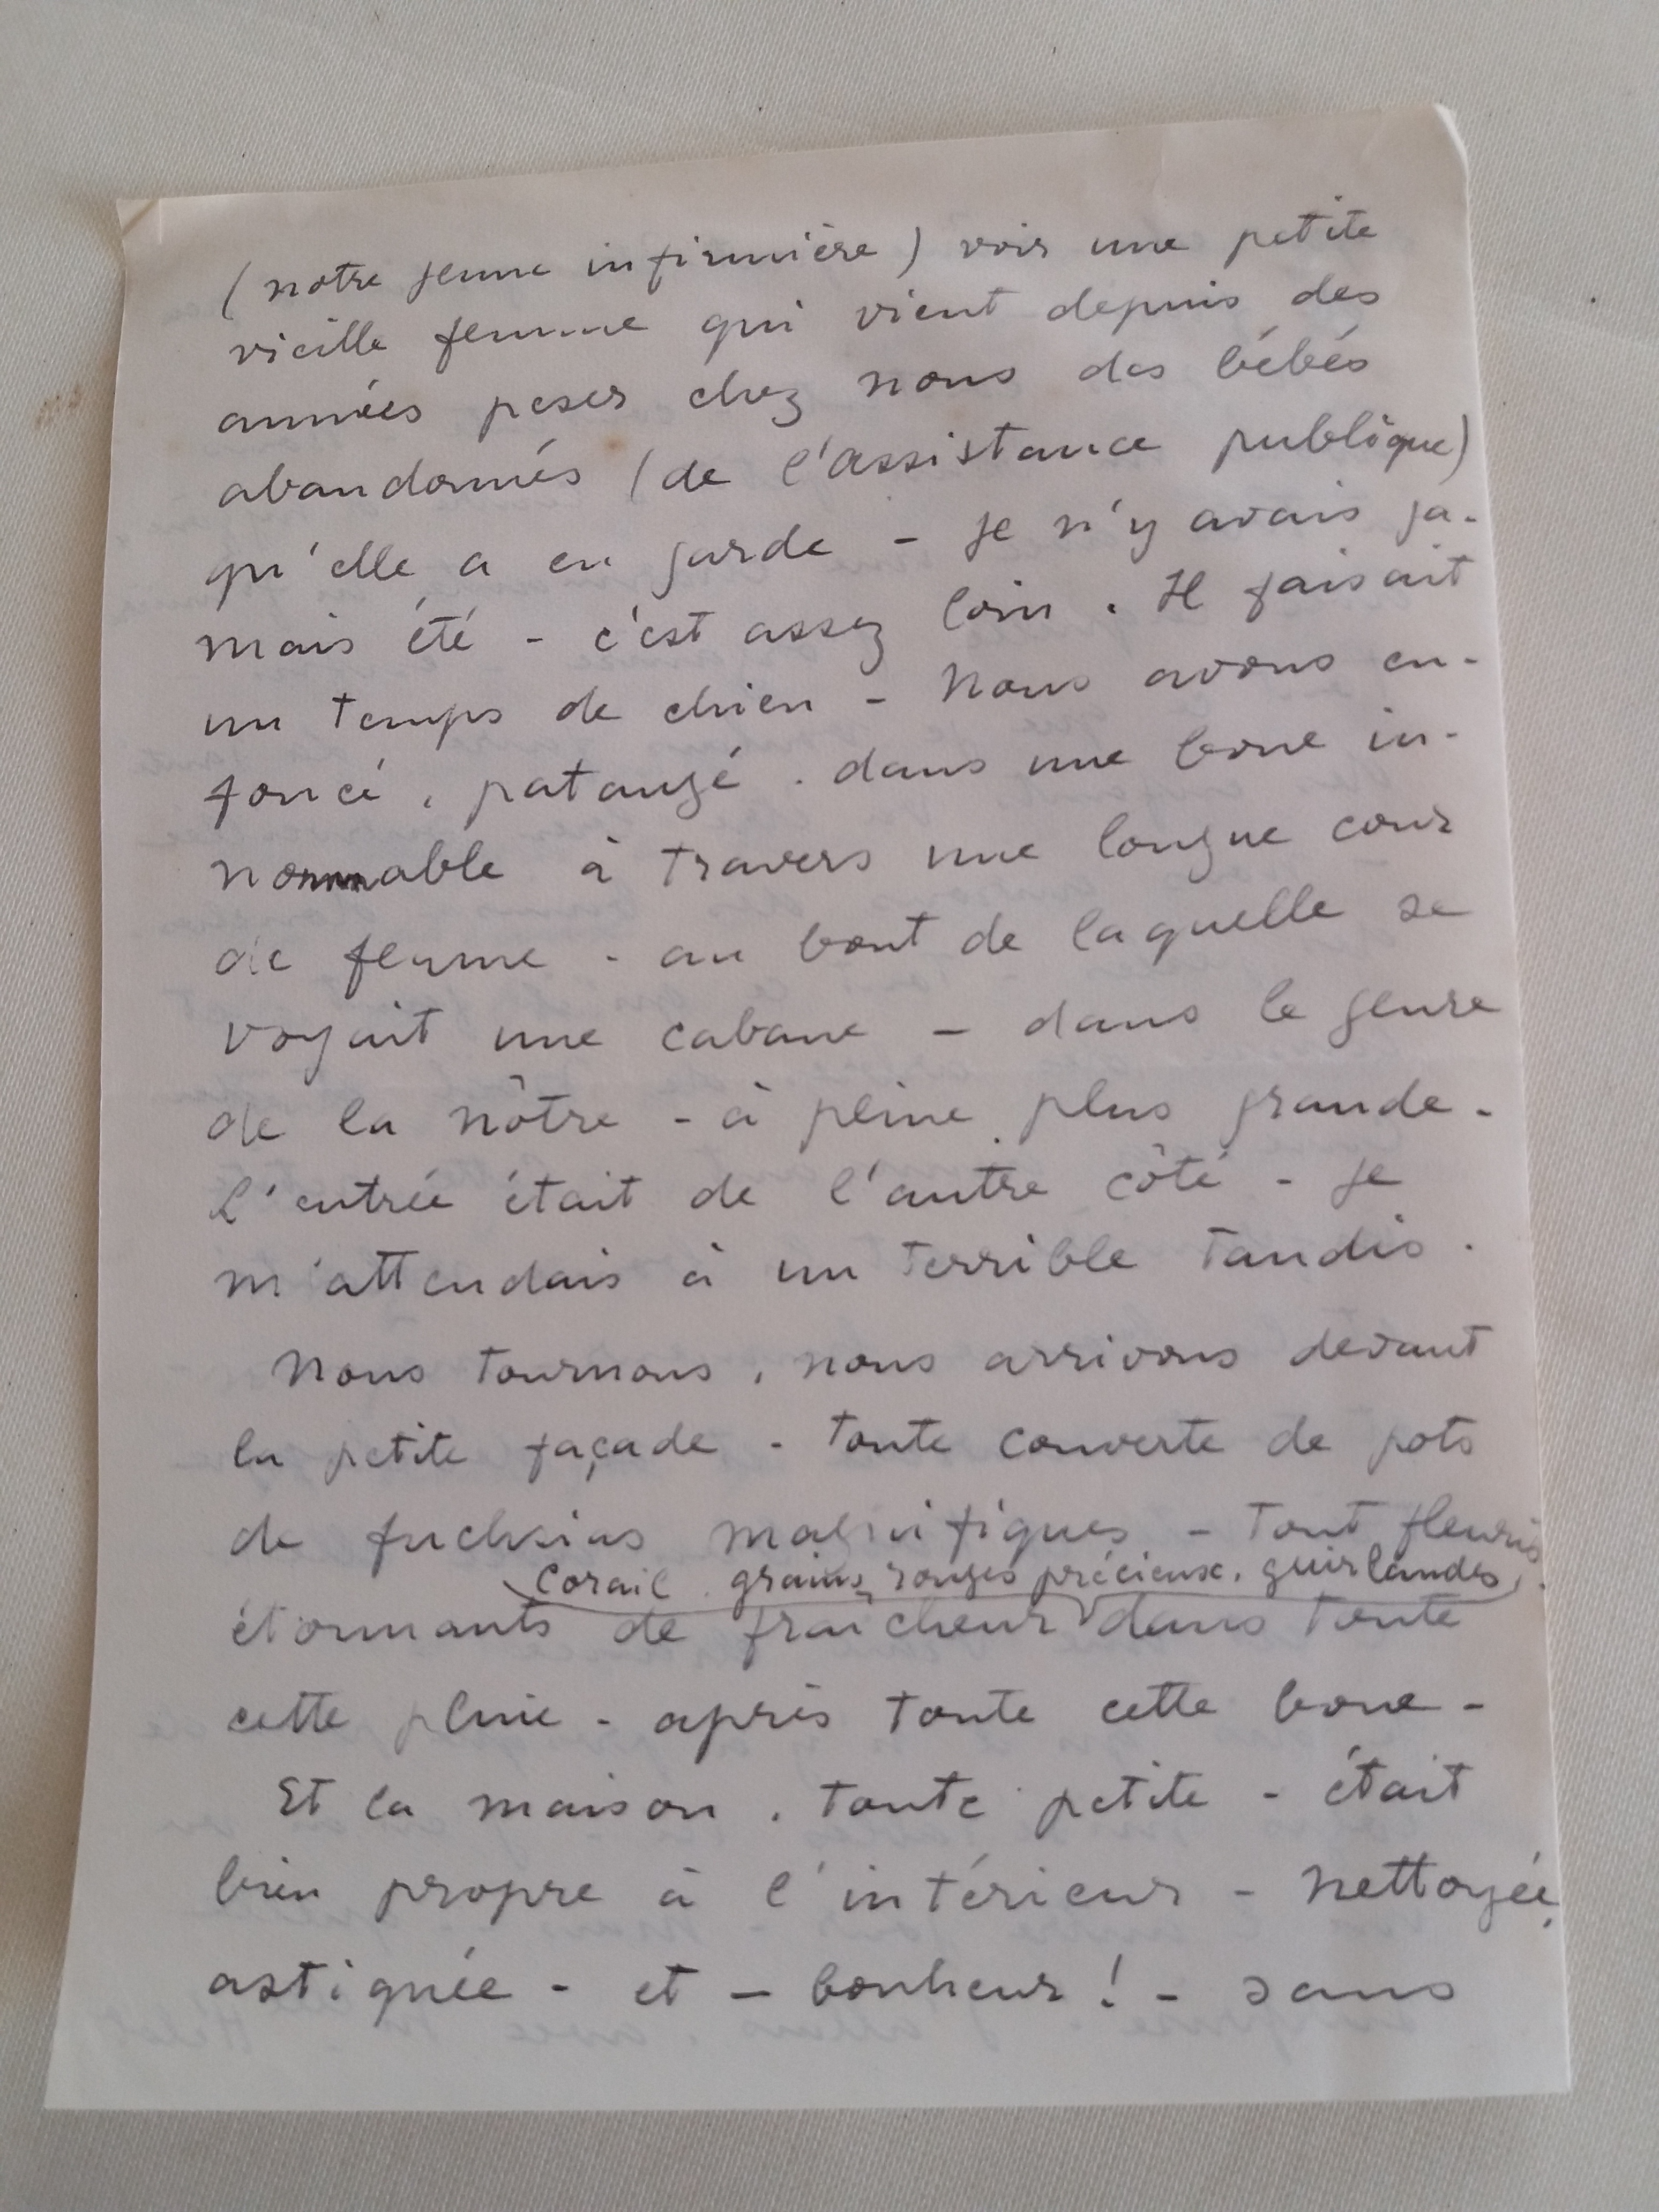 (notre jeune infirmière) voir une petite
vieille femme qui vient depuis des
années peser chez nous des bébés
abandonnés (de l'assistance publique)
qu'elle a en garde - je n'y avais ja-
mais été - c'est assez loin. Il faisait
un temps de chien - Nous avons en-
foncé, patangé. dans une boue in-
nommable à travers une longue cour
de ferme - au bout de laquelle se
voyait une cabane - dans le genre
de la nôtre - à peine plus grande -
L'entrée était de l'autre côté - je
m'attendais à un terrible taudis.
Nous tournons, nous arrivons devant
la petite façade - toute couverte de pots
de fuchsias magnifiques - tout fleuris
corail. grains rouges précieux. guirlandes,
étonnants de fraîcheur dans toute
cette pluie - après toute cette boue -
Et la maison. toute petite - était
bien propre à l'intérieur - nettoyée,
astiquée - et - bonheur! - sans